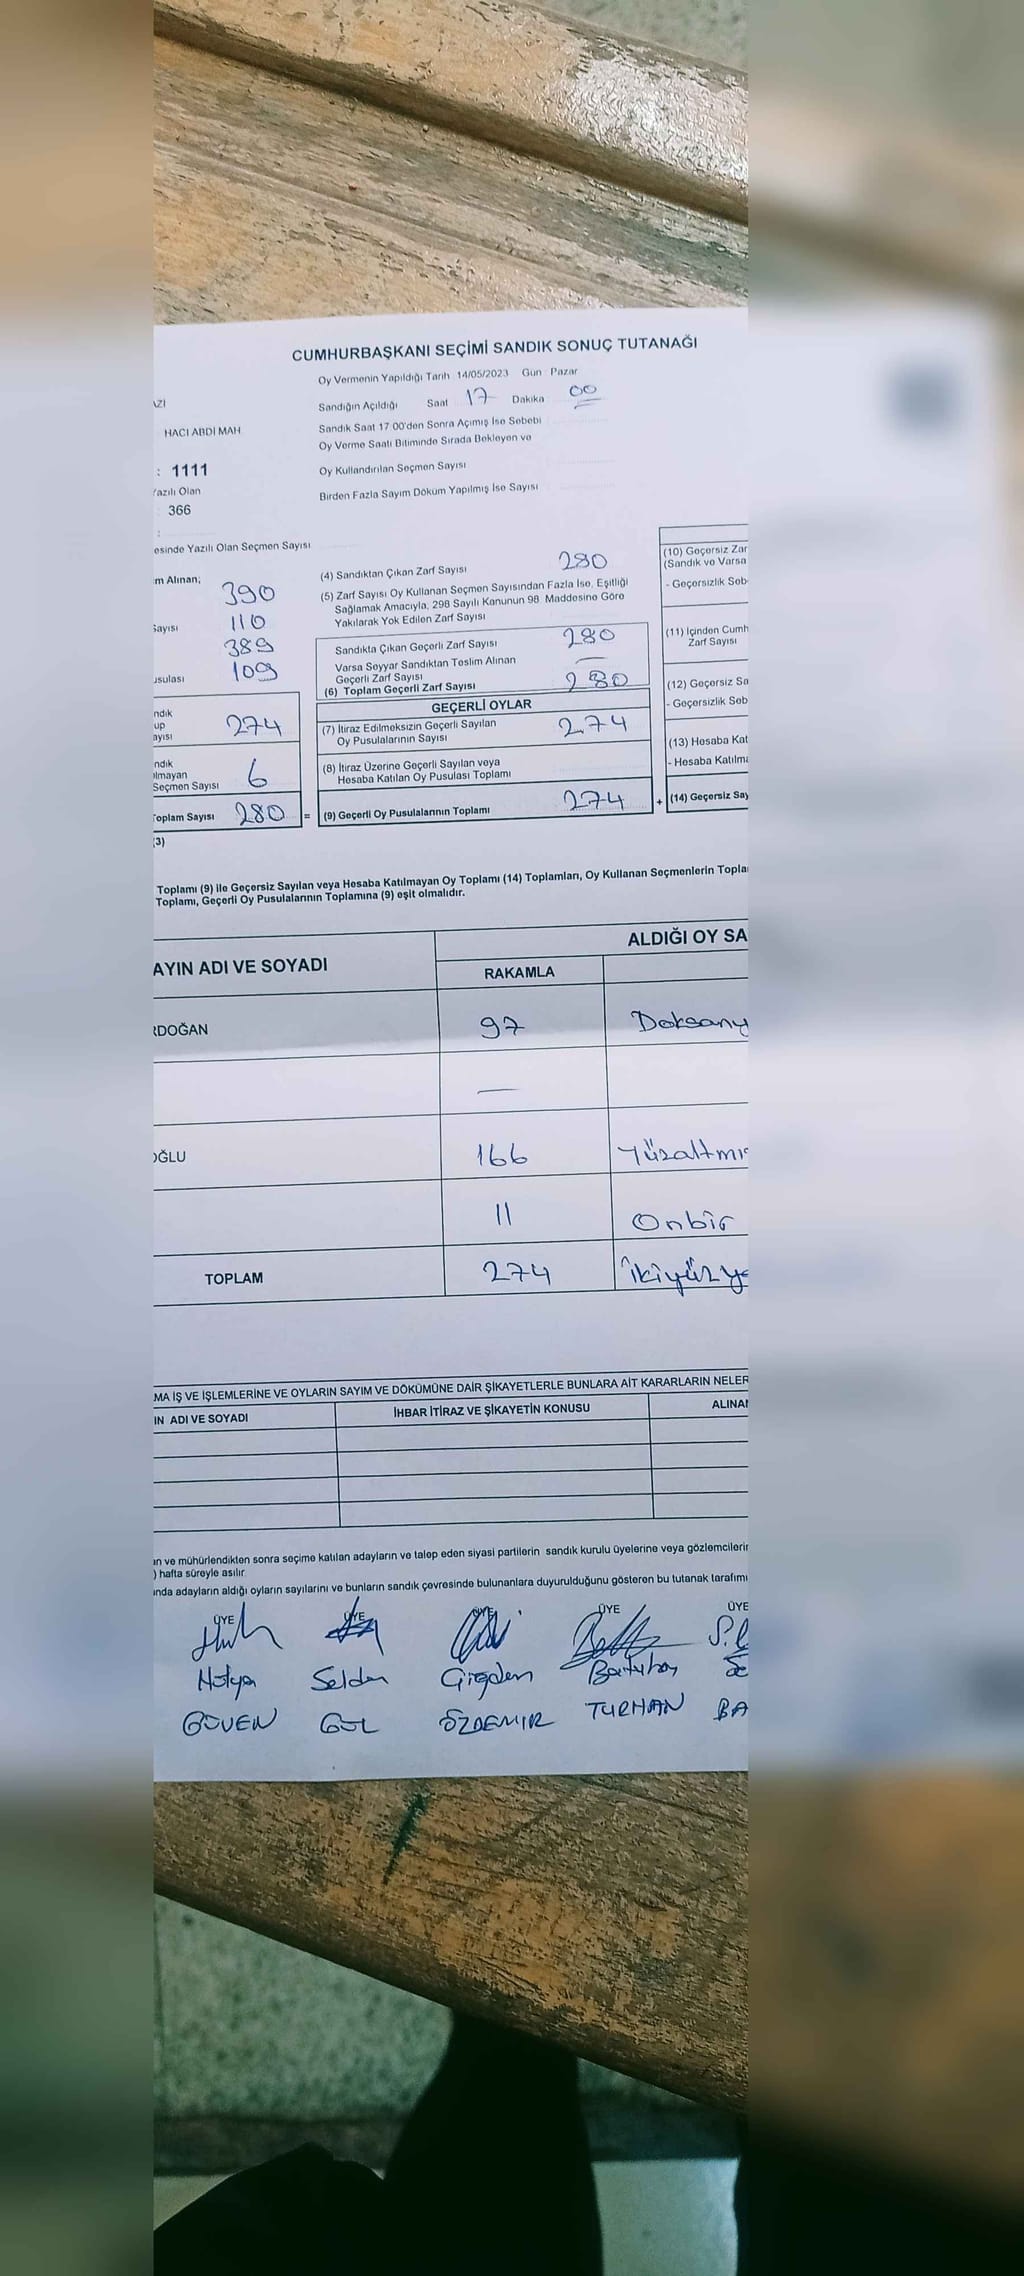 CUMHURBAŞKANI SEÇİMİ SANDIK SONUÇ TUTANAĞI
Oy Vermenin Yapıldığı Tarih 14/05/2023 Gün Pazar
Sandığın Açıldığı Saat 17 Dakika 00
Sandık Saat 17 00'den Sonra Açımış İse Sebebi
Oy Verme Saati Bitiminde Sırada Bekleyen ve
Oy Kullandırılan Seçmen Sayısı
Birden Fazla Sayım Döküm Yapılmış İse Sayısı
AZİ
HACI ABDİ MAH
: 1111
Yazılı Olan
: 366
:
esinde Yazılı Olan Seçmen Sayısı
m Alınan;
390
Sayısı 110
389
usulası 109
ndık
up
ayısı 274
ndık
lmayan
Seçmen Sayısı 6
Toplam Sayısı 280 =
(3)
(4) Sandıktan Çıkan Zarf Sayısı 280
(5) Zarf Sayısı Oy Kullanan Seçmen Sayısından Fazla İse, Eşitliği
Sağlamak Amacıyla, 298 Sayılı Kanunun 98. Maddesine Göre
Yakılarak Yok Edilen Zarf Sayısı
Sandıkta Çıkan Geçerli Zarf Sayısı 280
Varsa Seyyar Sandıktan Teslim Alınan
Geçerli Zarf Sayısı —
(6) Toplam Geçerli Zarf Sayısı 280
GEÇERLİ OYLAR
(7) İtiraz Edilmeksizin Geçerli Sayılan
Oy Pusulalarının Sayısı 274
(8) İtiraz Üzerine Geçerli Sayılan veya
Hesaba Katılan Oy Pusulası Toplamı
(9) Geçerli Oy Pusulalarının Toplamı 274 +
(10) Geçersiz Zar
(Sandık ve Varsa
- Geçersizlik Seb
(11) İçinden Cumh
Zarf Sayısı
(12) Geçersiz Sa
- Geçersizlik Seb
(13) Hesaba Kat
- Hesaba Katılma
(14) Geçersiz Say
Toplamı (9) ile Geçersiz Sayılan veya Hesaba Katılmayan Oy Toplamı (14) Toplamları, Oy Kullanan Seçmenlerin Topla
Toplamı, Geçerli Oy Pusulalarının Toplamına (9) eşit olmalıdır.
AYIN ADI VE SOYADI
ALDIĞI OY SA
RAKAMLA
RDOĞAN 97 Doksany
—
OĞLU 166 Yüzaltmı
11 Onbir
TOPLAM 274 İkiyüzye
MA İŞ VE İŞLEMLERİNE VE OYLARIN SAYIM VE DÖKÜMÜNE DAİR ŞİKAYETLERLE BUNLARA AİT KARARLARIN NELER
IN ADI VE SOYADI İHBAR İTİRAZ VE ŞİKAYETİN KONUSU ALINAN
an ve mühürlendikten sonra seçime katılan adayların ve talep eden siyasi partilerin sandık kurulu üyelerine veya gözlemcilerin
) hafta süreyle asılır
nda adayların aldığı oyların sayılarını ve bunların sandık çevresinde bulunanlara duyurulduğunu gösteren bu tutanak tarafımı
ÜYE ÜYE ÜYE ÜYE ÜYE
Selda Çiğdem Batuhan
GÜVEN GÜL ÖZDEMİR TURHAN BA